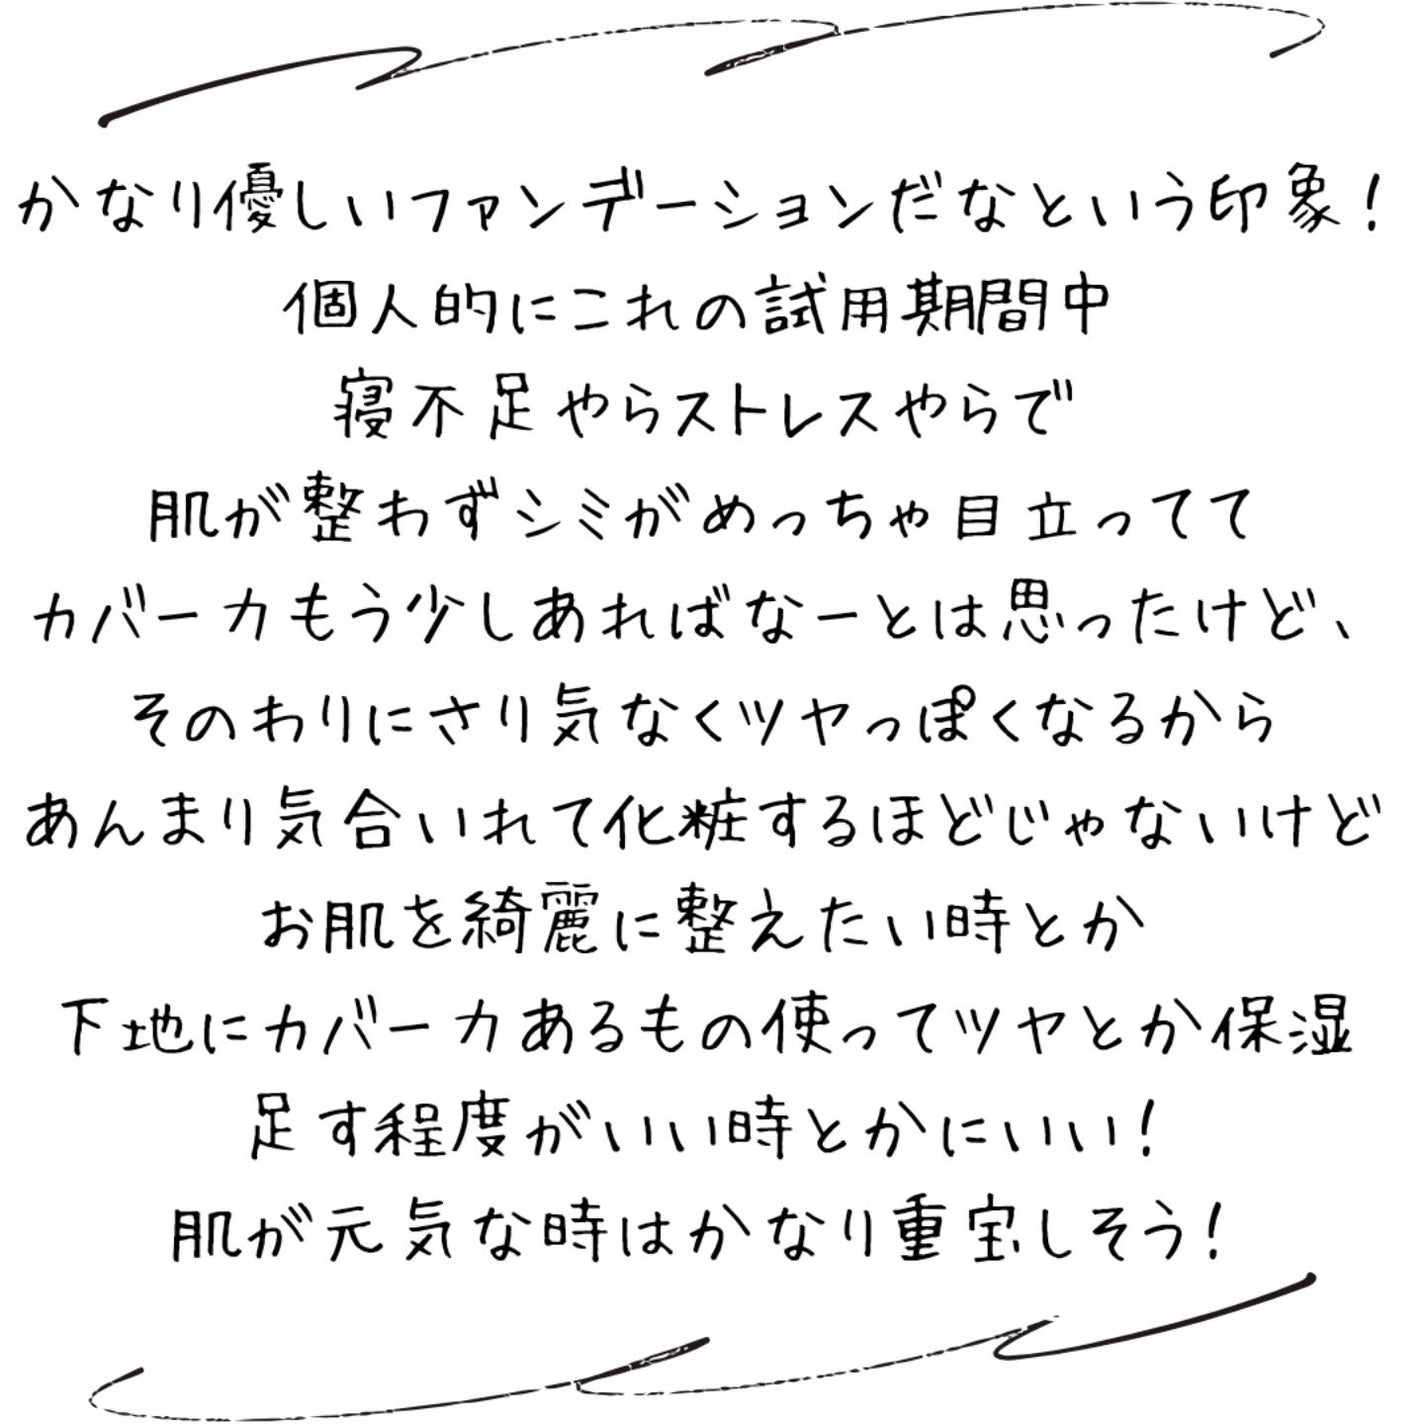 かなり優しいファンデーションだなという印象！
個人的にこれの試用期間中
寝不足やらストレスやらで
肌が整わずシミがめっちゃ目立ってて
カバー力もう少しあればなーとは思ったけど、
そのわりにさり気なくツヤっぽくなるから
あんまり気合いれて化粧するほどじゃないけど
お肌を綺麗に整えたい時とか
下地にカバー力あるもの使ってツヤとか保湿
足す程度がいい時とかにいい！
肌が元気な時はかなり重宝しそう！